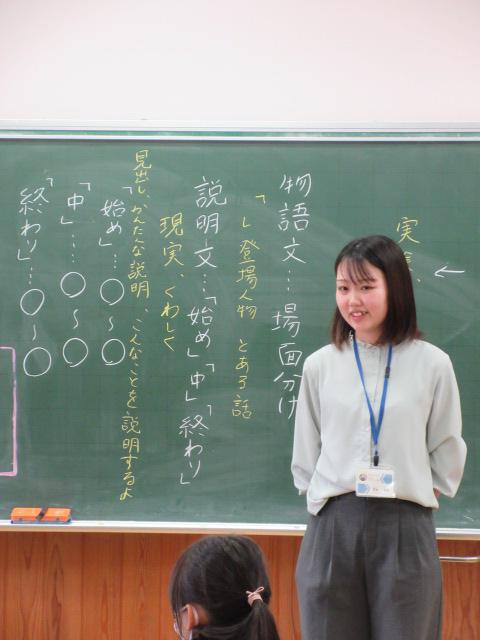 物語文…場面分け
「 」登場人物 とある話
説明文…「始め」「中」「終わり」
現実、くわしく
見出し、かんたんな説明、こんなことを説明するよ
「始め」…〇～〇
「中」…〇～〇
「終わり」…〇～〇